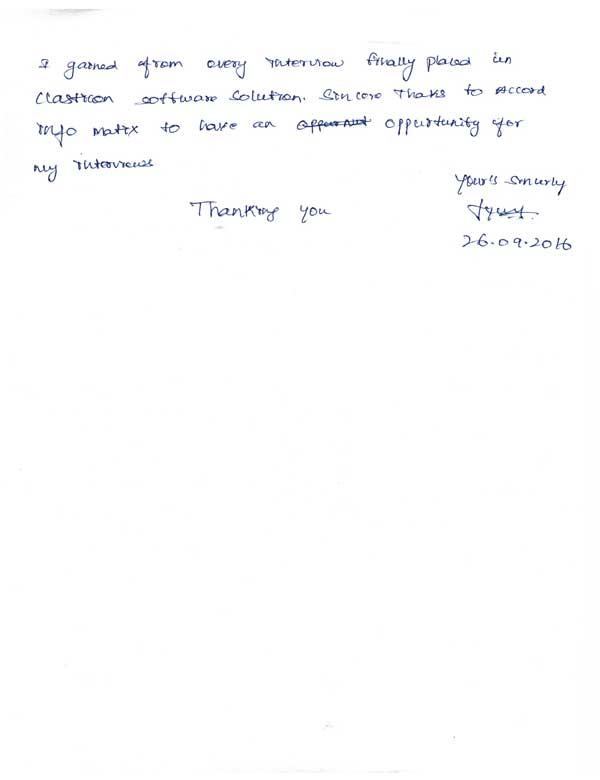 I gained from every interview finally placed in
Clasticon software solution. Sincere Thaks to Accord
Info matix to have an oppurtunity for
my interviews
Your's Sincerly
Thanking you
26.09.2016